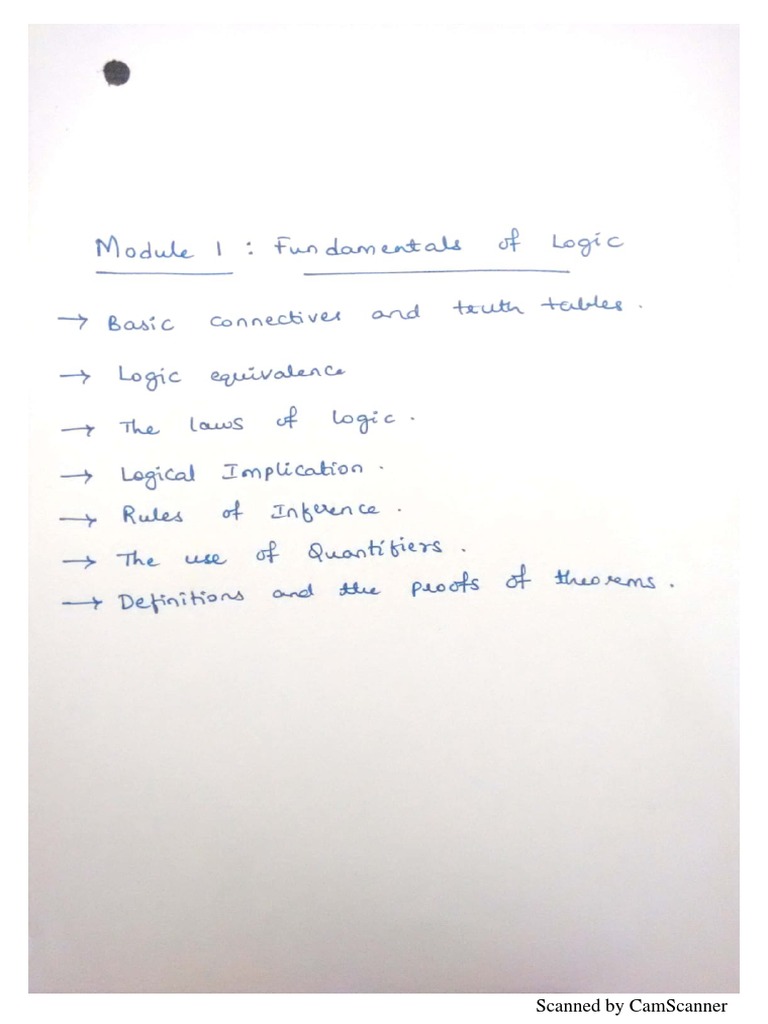 Module 1 : Fundamentals of Logic
→ Basic connectives and truth tables.
→ Logic equivalence
→ The laws of logic.
→ Logical Implication.
→ Rules of Inference.
→ The use of Quantifiers.
→ Definitions and the proofs of theorems.
Scanned by CamScanner